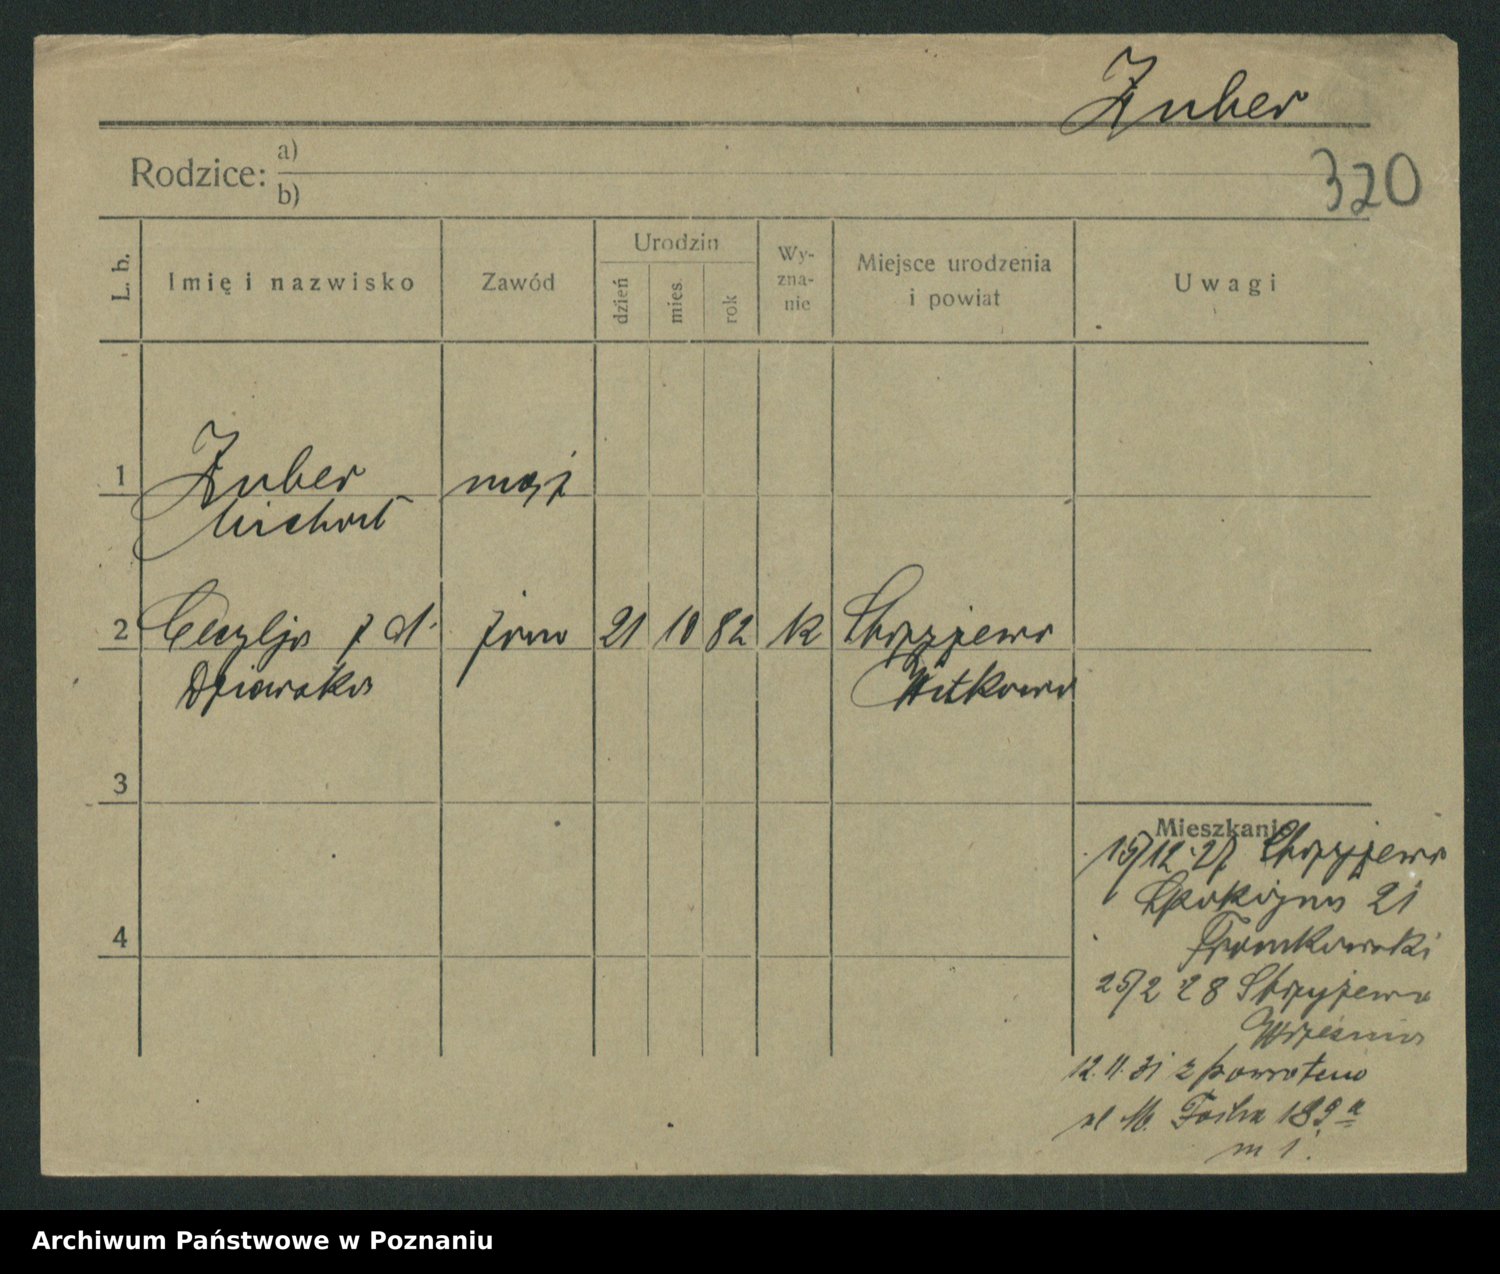 Zuber
320
Rodzice: a)
b)
L. b.
Imię i nazwisko
Zawód
Urodzin
dzień
mies.
rok
Wy-
zna-
nie
Miejsce urodzenia
i powiat
Uwagi
1 Zuber mąż
Michał
2 Cecylja z d. żona 21 10 82 k Skrzyżewo
Dziewska Witkowo
3
4
Mieszkanie
15/12.27 Skrzyżewo
Spokojna 21
Fromkowski
25/2 28 Skrzyżewo
Września
12.11.31 z powrotem
ul M. Focha 189a
m 1.
Archiwum Państwowe w Poznaniu